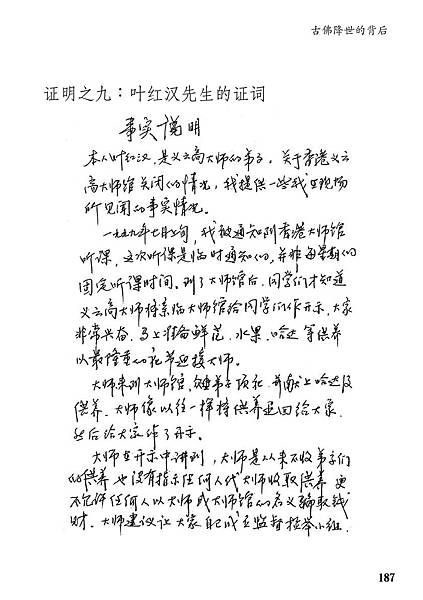 古佛降世的背后
证明之九：叶红汉先生的证词
事实说明
本人叶红汉，是义云高大师的弟子。关于香港义云
高大师馆关闭的情况，我提供一些我在现场
所见闻的事实情况。
一九九九年七月上旬，我被通知到香港大师馆
听课，这次听课是临时通知的，并非每星期的
固定听课时间。到了大师馆后，同学们才知道
义云高大师将亲临大师馆给同学们作开示，大家
非常兴奋，马上准备鲜花、水果、哈达等供养
以最隆重的礼节迎接大师。
大师来到大师馆，众弟子顶礼，并献上哈达及
供养，大师像以往一样将供养返回给大家，
然后给大家作了开示。
大师在开示中讲到，大师是从来不收弟子们
的供养，也没有指示任何人代大师收取供养，更
不允许任何人以大师或大师馆的名义骗取钱
财，大师建议让大家自己成立监督检举小组，
187